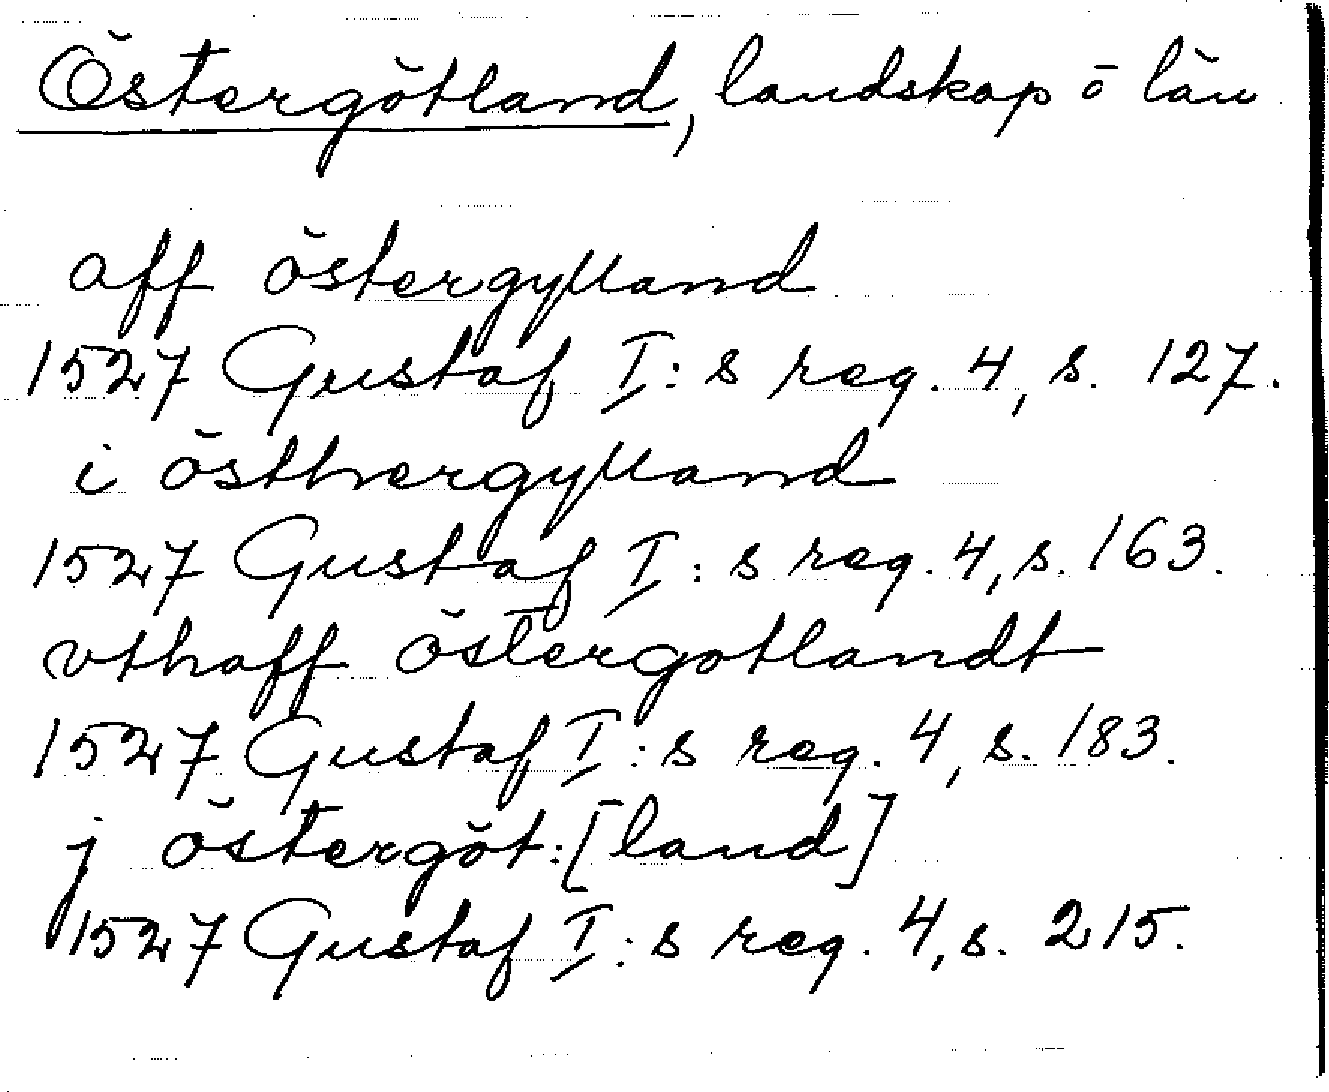 Östergötland, landskap o län
aff östergylland
1527 Gustaf I:s reg. 4, s. 127.
i östhergylland
1527 Gustaf I:s reg. 4, s. 163.
vthaff östergotlandt
1527 Gustaf I:s reg. 4, s. 183.
j östergöt:[land]
1527 Gustaf I:s reg. 4, s. 215.